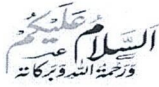 السلام عليكم
ورحمة الله وبركاته